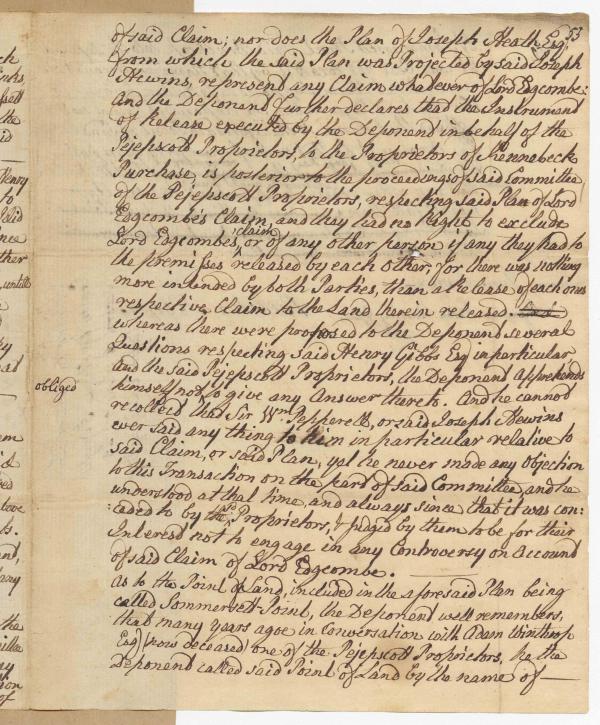 53
of said Claim; nor does the Plan of Joseph Heath Esqr
from which the said Plan was Projected by said Joseph
Hewins, represent any Claim whatever of Lord Edgcombe:
And the Deponant further declares that the Instrument
of Release executed by the Deponent in behalf of the
Pejepscott Proprietors, to the Proprietors of Kennabeck
Purchase, is posterior to the proceedings of said Committee
of the Pejepscott Proprietors, respecting said Plan of Lord
Edgcombe's Claim, and they had no Right to exclude
Lord Edgcombes claim, or of any other person if any they had to
the premisses released by each other, for there was nothing
more intended by both Parties, than a Release of each ones
respective Claim to the Land therein released.
whereas there were proposed to the Deponent several
Questions respecting said Henry Gibbs Esq in particular
and the said Pejepscott Proprietors, the Deponent apprehends
himself not obliged to give any Answer thereto. And he cannot
recollect that Sir Wm Pepperell, or said Joseph Hewins
ever said any thing to him in particular relative to
said Claim, or said Plan, yet he never made any Objection
to this Transaction on the part of said Committee, and he
understood at that time, and always since that it was con:
:ceded to by the sd Proprietors, & judged by them to be for their
Interest not to engage in any Controversy on Account
of said Claim of Lord Edgcombe.
As to the Point of Land, included in the aforesaid Plan being
called Sommersett-Point, the Deponent well remembers,
that many years agoe in Conversation with Adam Winthrop
Esq) (now deceased) one of the Pejepscott Proprietors, he the
Deponent called said Point of Land by the name of